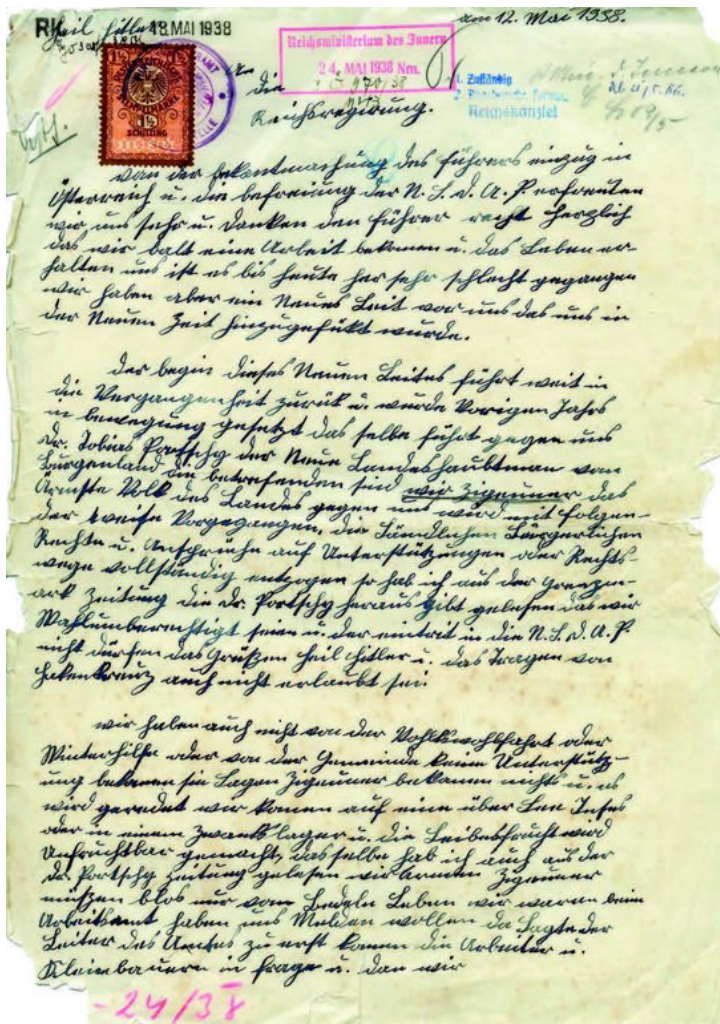 RK 18. MAI 1938
Heil Hitler
am 12. Mai 1938.
Reichsministerium des Innern
24. MAI 1938 Nm.
1 1/2
STEMPELMARKE
1 1/2
SCHILLING
An
die
Reichsregierung.
1. Zuständig
Reichskanzlei
von der bekantmachung des führers einzug in
Österreich u. die befreiung der N.S.d.A.P. erfreuten
wir uns sehr u. danken den führer recht herzlich
das wir balt eine Arbeit bekomen u. das Leben er-
halten uns ist es bis heute her sehr schlecht gegangen
wir haben aber ein Neues Leit vor uns das uns in
der Neuen Zeit hinzugefükt wurde.
der begin dieses Neuen Leites führt weit in
die Vergangenheit zurük u. wurde Vorigen Jahrs
in bewegung gesetzt das selbe führt gegen uns
Dr. Tobias Portschy der Neue Landeshaubtman von
Burgenland die betrefenden sind wir Zigeuner das
Ärmste Volk des Landes gegen uns wird mit folgen-
der weise Vorgegangen, die Sämdlichen Bürgerlichen
Rechte u. Ansprüche auf Unterstützungen oder Rechts-
wege vollständig entzogen so hab ich aus der Grenzm-
ark Zeitung die Dr. Portschy heraus gibt gelesen das wir
Wahlumberechtigt seien u. der eintrit in die N.S.d.A.P.
nicht dürfen das Grüßen Heil Hitler u. das Tragen von
Hakenkreuz auch nicht erlaubt sei.
wir haben auch nicht von der Vohlkswohlfahrt oder
Winterhilfe oder von der Gemeinde keine Unterstütz-
ung bekomen sie Sagen Zigeuner bekomen nichts u. es
wird geredet wir komen auf eine über See Insel
oder in einem Zwankslager u. die Leibesfrucht wird
Unfruchtbar gemacht, dasselbe hab ich auch aus der
Dr. Portschy Zeitung gelesen wir Armen Zigeuner
müßen blos nur vom Bedeln Leben wir waren beim
Arbeitsamt haben uns Melden wollen da Sagte der
Leiter des Amtes zu erst komen die Arbeiter u.
Kleinbauern in frage u. dan wir
-24/38